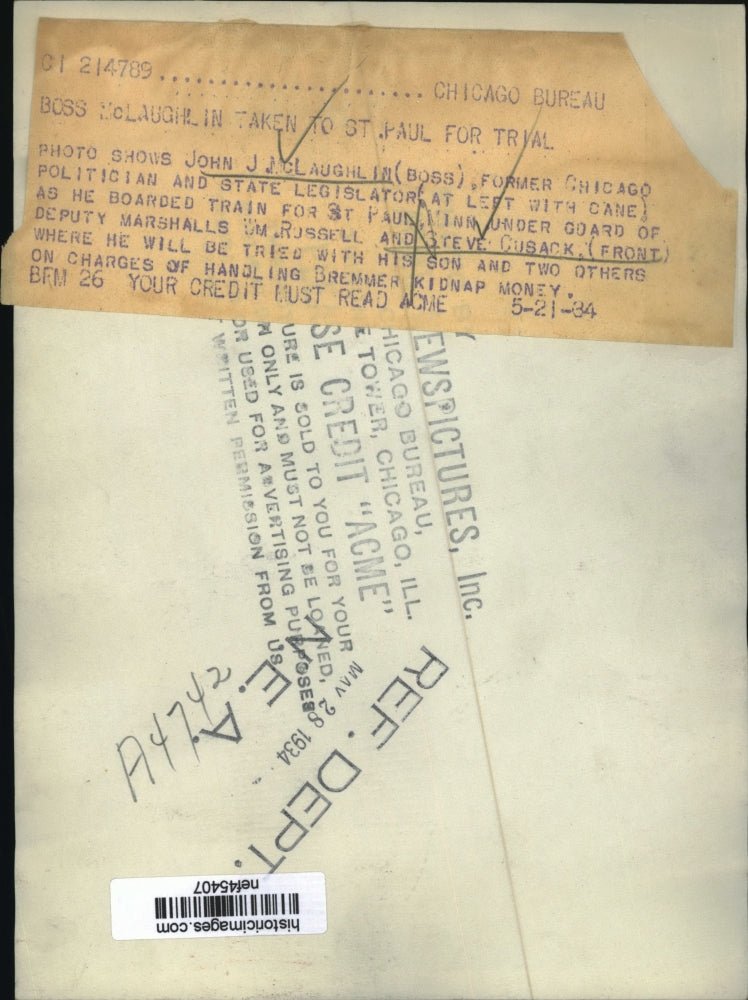 CI 214789........................ CHICAGO BUREAU
BOSS McLAUGHLIN TAKEN TO ST.PAUL FOR TRIAL
PHOTO SHOWS JOHN J.McLAUGHLIN(BOSS),FORMER CHICAGO
POLITICIAN AND STATE LEGISLATOR(AT LEFT WITH CANE)
AS HE BOARDED TRAIN FOR ST PAUL,MINN UNDER GUARD OF
DEPUTY MARSHALLS WM.RUSSELL AND STEVE CUSACK,(FRONT)
WHERE HE WILL BE TRIED WITH HIS SON AND TWO OTHERS
ON CHARGES OF HANDLING BREMMER KIDNAP MONEY.
BFM 26 YOUR CREDIT MUST READ ACME 5-21-34
EWSPICTURES, Inc.
HICAGO BUREAU,
E TOWER, CHICAGO, ILL.
SE CREDIT "ACME"
URE IS SOLD TO YOU FOR YOUR
N ONLY AND MUST NOT BE LOANED,
OR USED FOR ADVERTISING PURPOSES
WRITTEN PERMISSION FROM US
N. E. A.
MAY 28 1934
REF. DEPT.
A4742
historicimages.com
nef45407